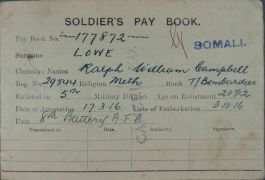 SOLDIER'S PAY BOOK.
Pay Book No. 177872
SOMALI.
Surname LOWE
Christian Names Ralph William Campbell
Reg. No. 29544 Religion Meth Rank T/Bombardier
Enlisted in 5th Military District. Age on Enlistment
Date of Attestation 17.3.16 Date of Embarkation 3.10.16
Unit 8th Battery A.F.A.
Transferred to Date Authority Signature